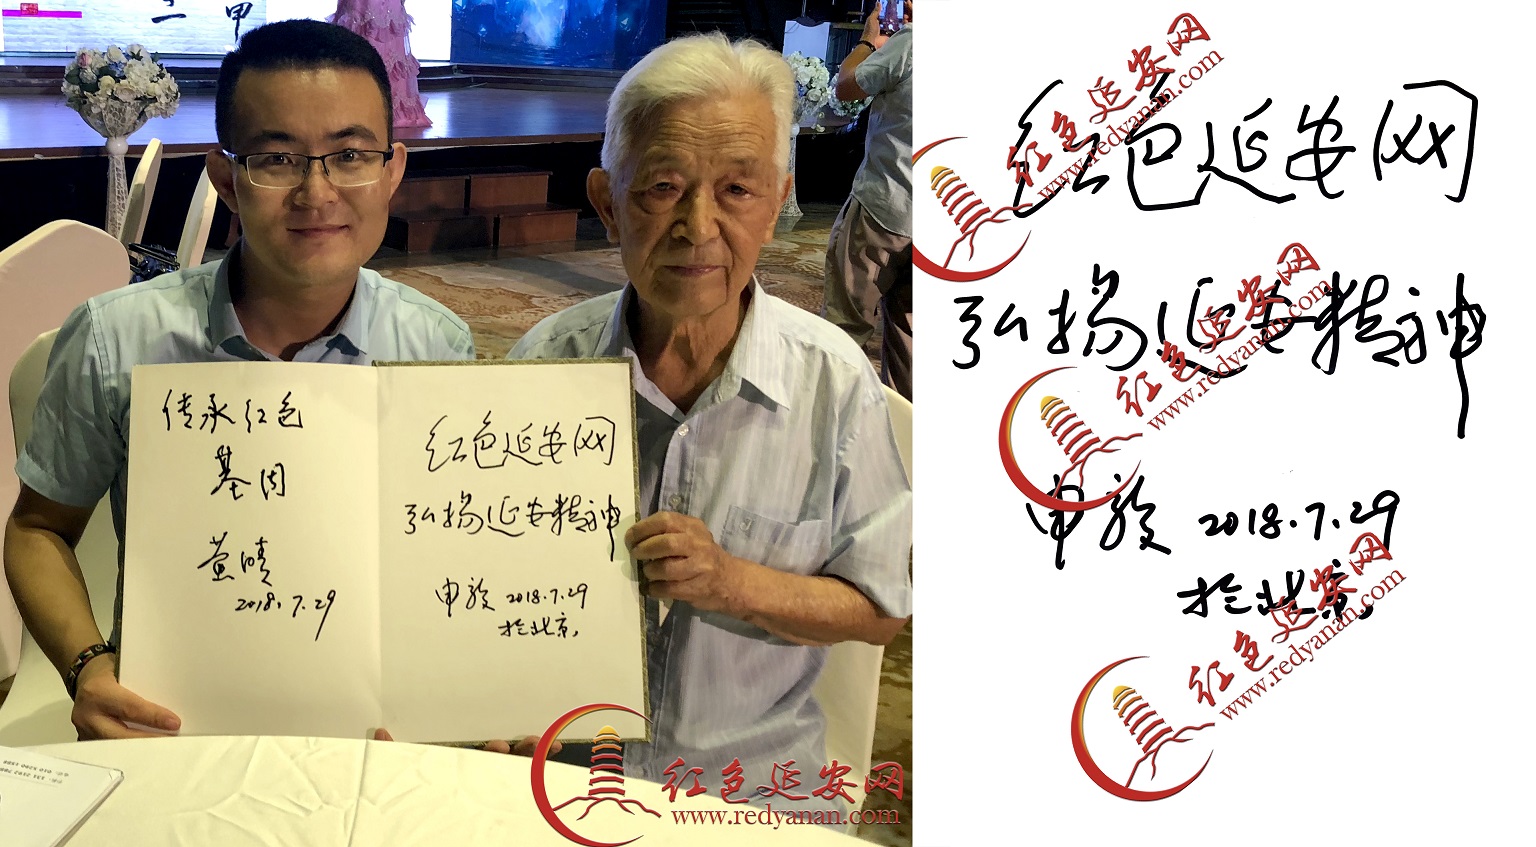 二 甲
传承红色
基因
黄晴
2018.7.29
红色延安网
弘扬延安精神
申毅 2018.7.29
於北京
红色延安网
www.redyanan.com
红色延安网
弘扬延安精神
申毅 2018.7.29
於北京
红色延安网
www.redyanan.com
红色延安网
www.redyanan.com
红色延安网
www.redyanan.com